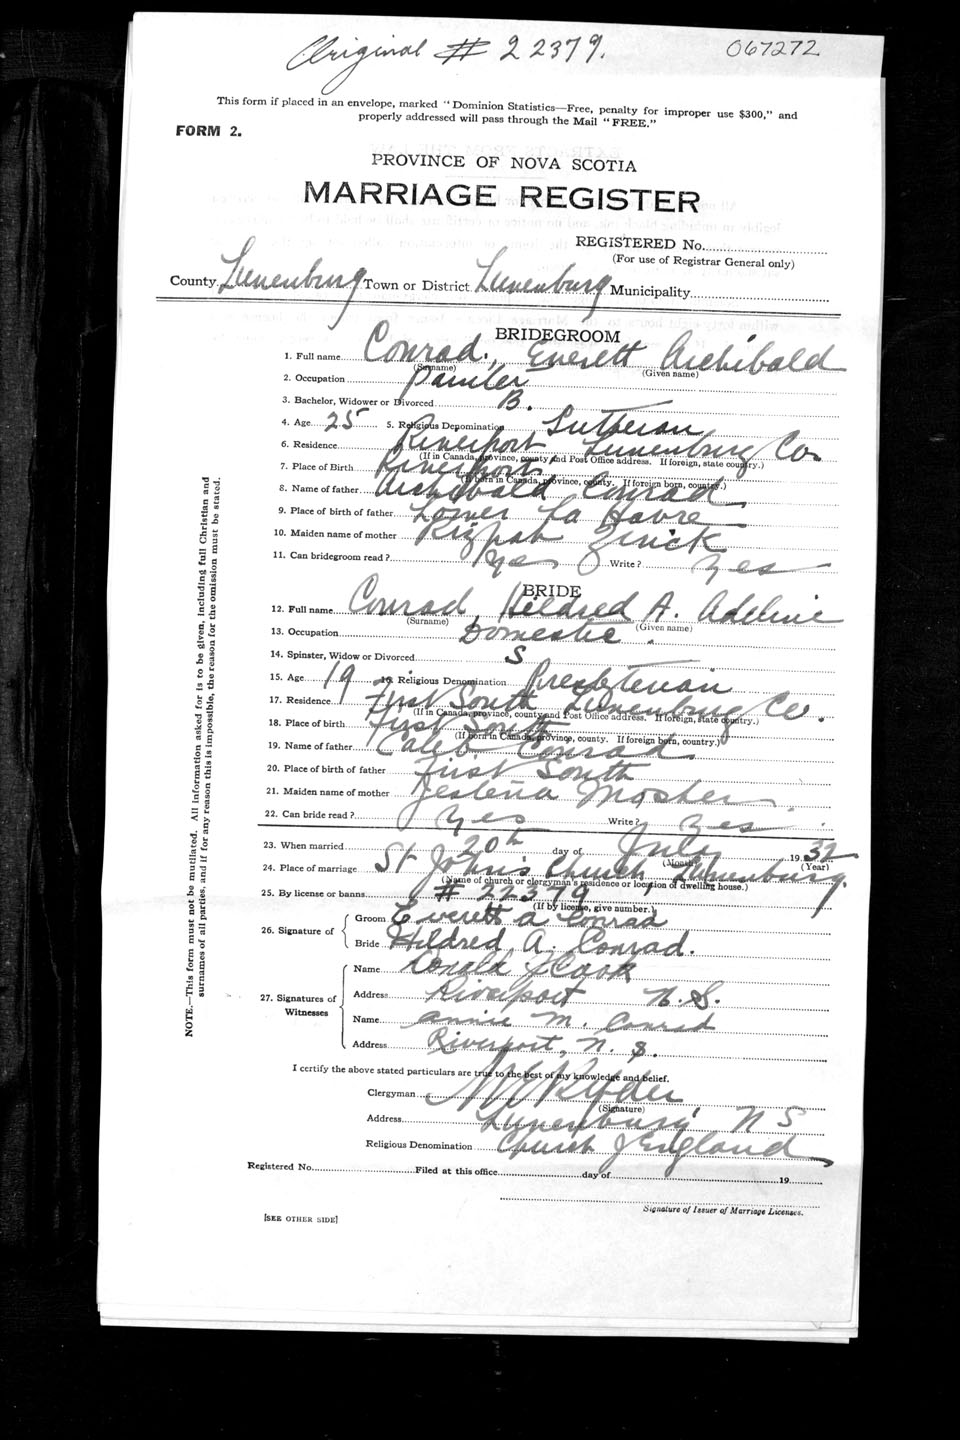 Original # 22379. 067272
This form if placed in an envelope, marked "Dominion Statistics—Free, penalty for improper use $300," and
properly addressed will pass through the Mail "FREE."
FORM 2.
PROVINCE OF NOVA SCOTIA
MARRIAGE REGISTER
REGISTERED No.
(For use of Registrar General only)
County Lunenburg Town or District Lunenburg Municipality
BRIDEGROOM
1. Full name Conrad, Everett Archibald
(Surname) (Given name)
2. Occupation Painter
3. Bachelor, Widower or Divorced B.
4. Age 25 5. Religious Denomination Lutheran
6. Residence Riverport Lunenburg Co
(If in Canada, province, county and Post Office address. If foreign, state country.)
7. Place of Birth Riverport,
(If born in Canada, province, county. If foreign born, country.)
8. Name of father Archibald Conrad
9. Place of birth of father Lower La Havre
10. Maiden name of mother Rizpah Zinck
11. Can bridegroom read? Yes Write? Yes
BRIDE
12. Full name Conrad, Hildred A. Adeline
(Surname) (Given name)
13. Occupation Domestic.
14. Spinster, Widow or Divorced S
15. Age 19 16. Religious Denomination Presbyterian
17. Residence First South Lunenburg Co.
(If in Canada, province, county and Post Office address. If foreign, state country.)
18. Place of birth First South
(If born in Canada, province, county. If foreign born, country.)
19. Name of father Caleb Conrad
20. Place of birth of father First South
21. Maiden name of mother Mosher
22. Can bride read? Yes Write? Yes
23. When married 20th day of July 1932
(Month) (Year)
24. Place of marriage St John's Church, Lunenburg.
(Name of church or clergyman's residence or location of dwelling house.)
25. By license or banns # 22379
(If by license, give number.)
26. Signature of Groom Everett A Conrad
Bride Hildred A. Conrad.
27. Signatures of Witnesses Name Donald J Cook
Address Riverport N.S.
Name Annie M. Conrad
Address Riverport, N.S.
I certify the above stated particulars are true to the best of my knowledge and belief.
Clergyman Ryder
(Signature)
Address Lunenburg, N S
Religious Denomination Church of England
Registered No. Filed at this office day of 19
Signature of Issuer of Marriage Licenses.
[SEE OTHER SIDE]
NOTE.—This form must not be mutilated. All information asked for is to be given, including full Christian and
surnames of all parties, and if for any reason this is impossible, the reason for the omission must be stated.